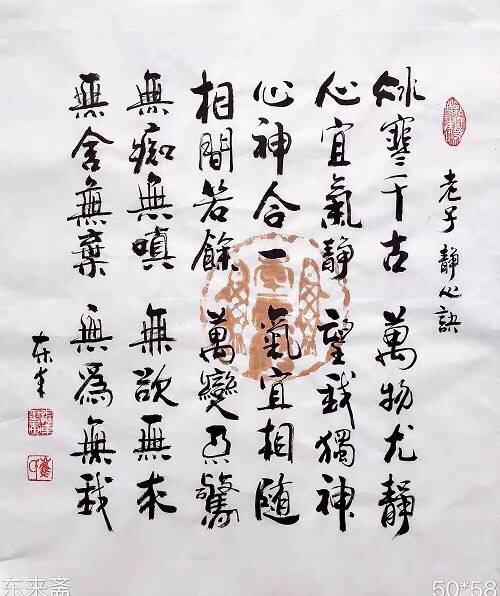 老子 靜心訣
冰寒千古 萬物尤靜
心宜氣靜 望我獨神
心神合一 氣宜相随
相間若餘 萬變不驚
無痴無嗔 無欲無求
無舍無棄 無為無我
东来
东来斋
50*58